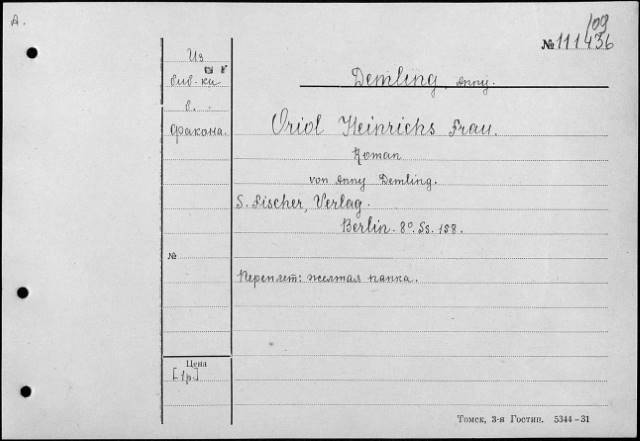 A.
/09
№ 111436
Из
биб-ки
в.
Фракона.
Demling, Anny.
Oriol Heinrichs Frau.
Roman
von Anny Demling.
S. Fischer, Verlag.
Berlin. 8°. Ss. 188.
№
Переплет: желтая папка.
Цена
[1р.]
Томск, 3-я Гостип. 5344—31